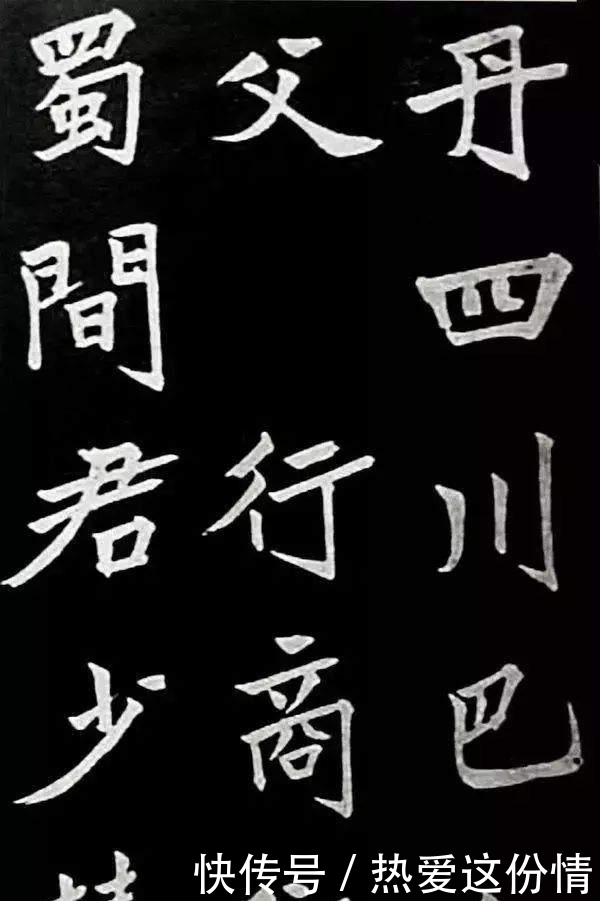 丹四川巴
父 行商
蜀間君少
快传号/热爱这份情